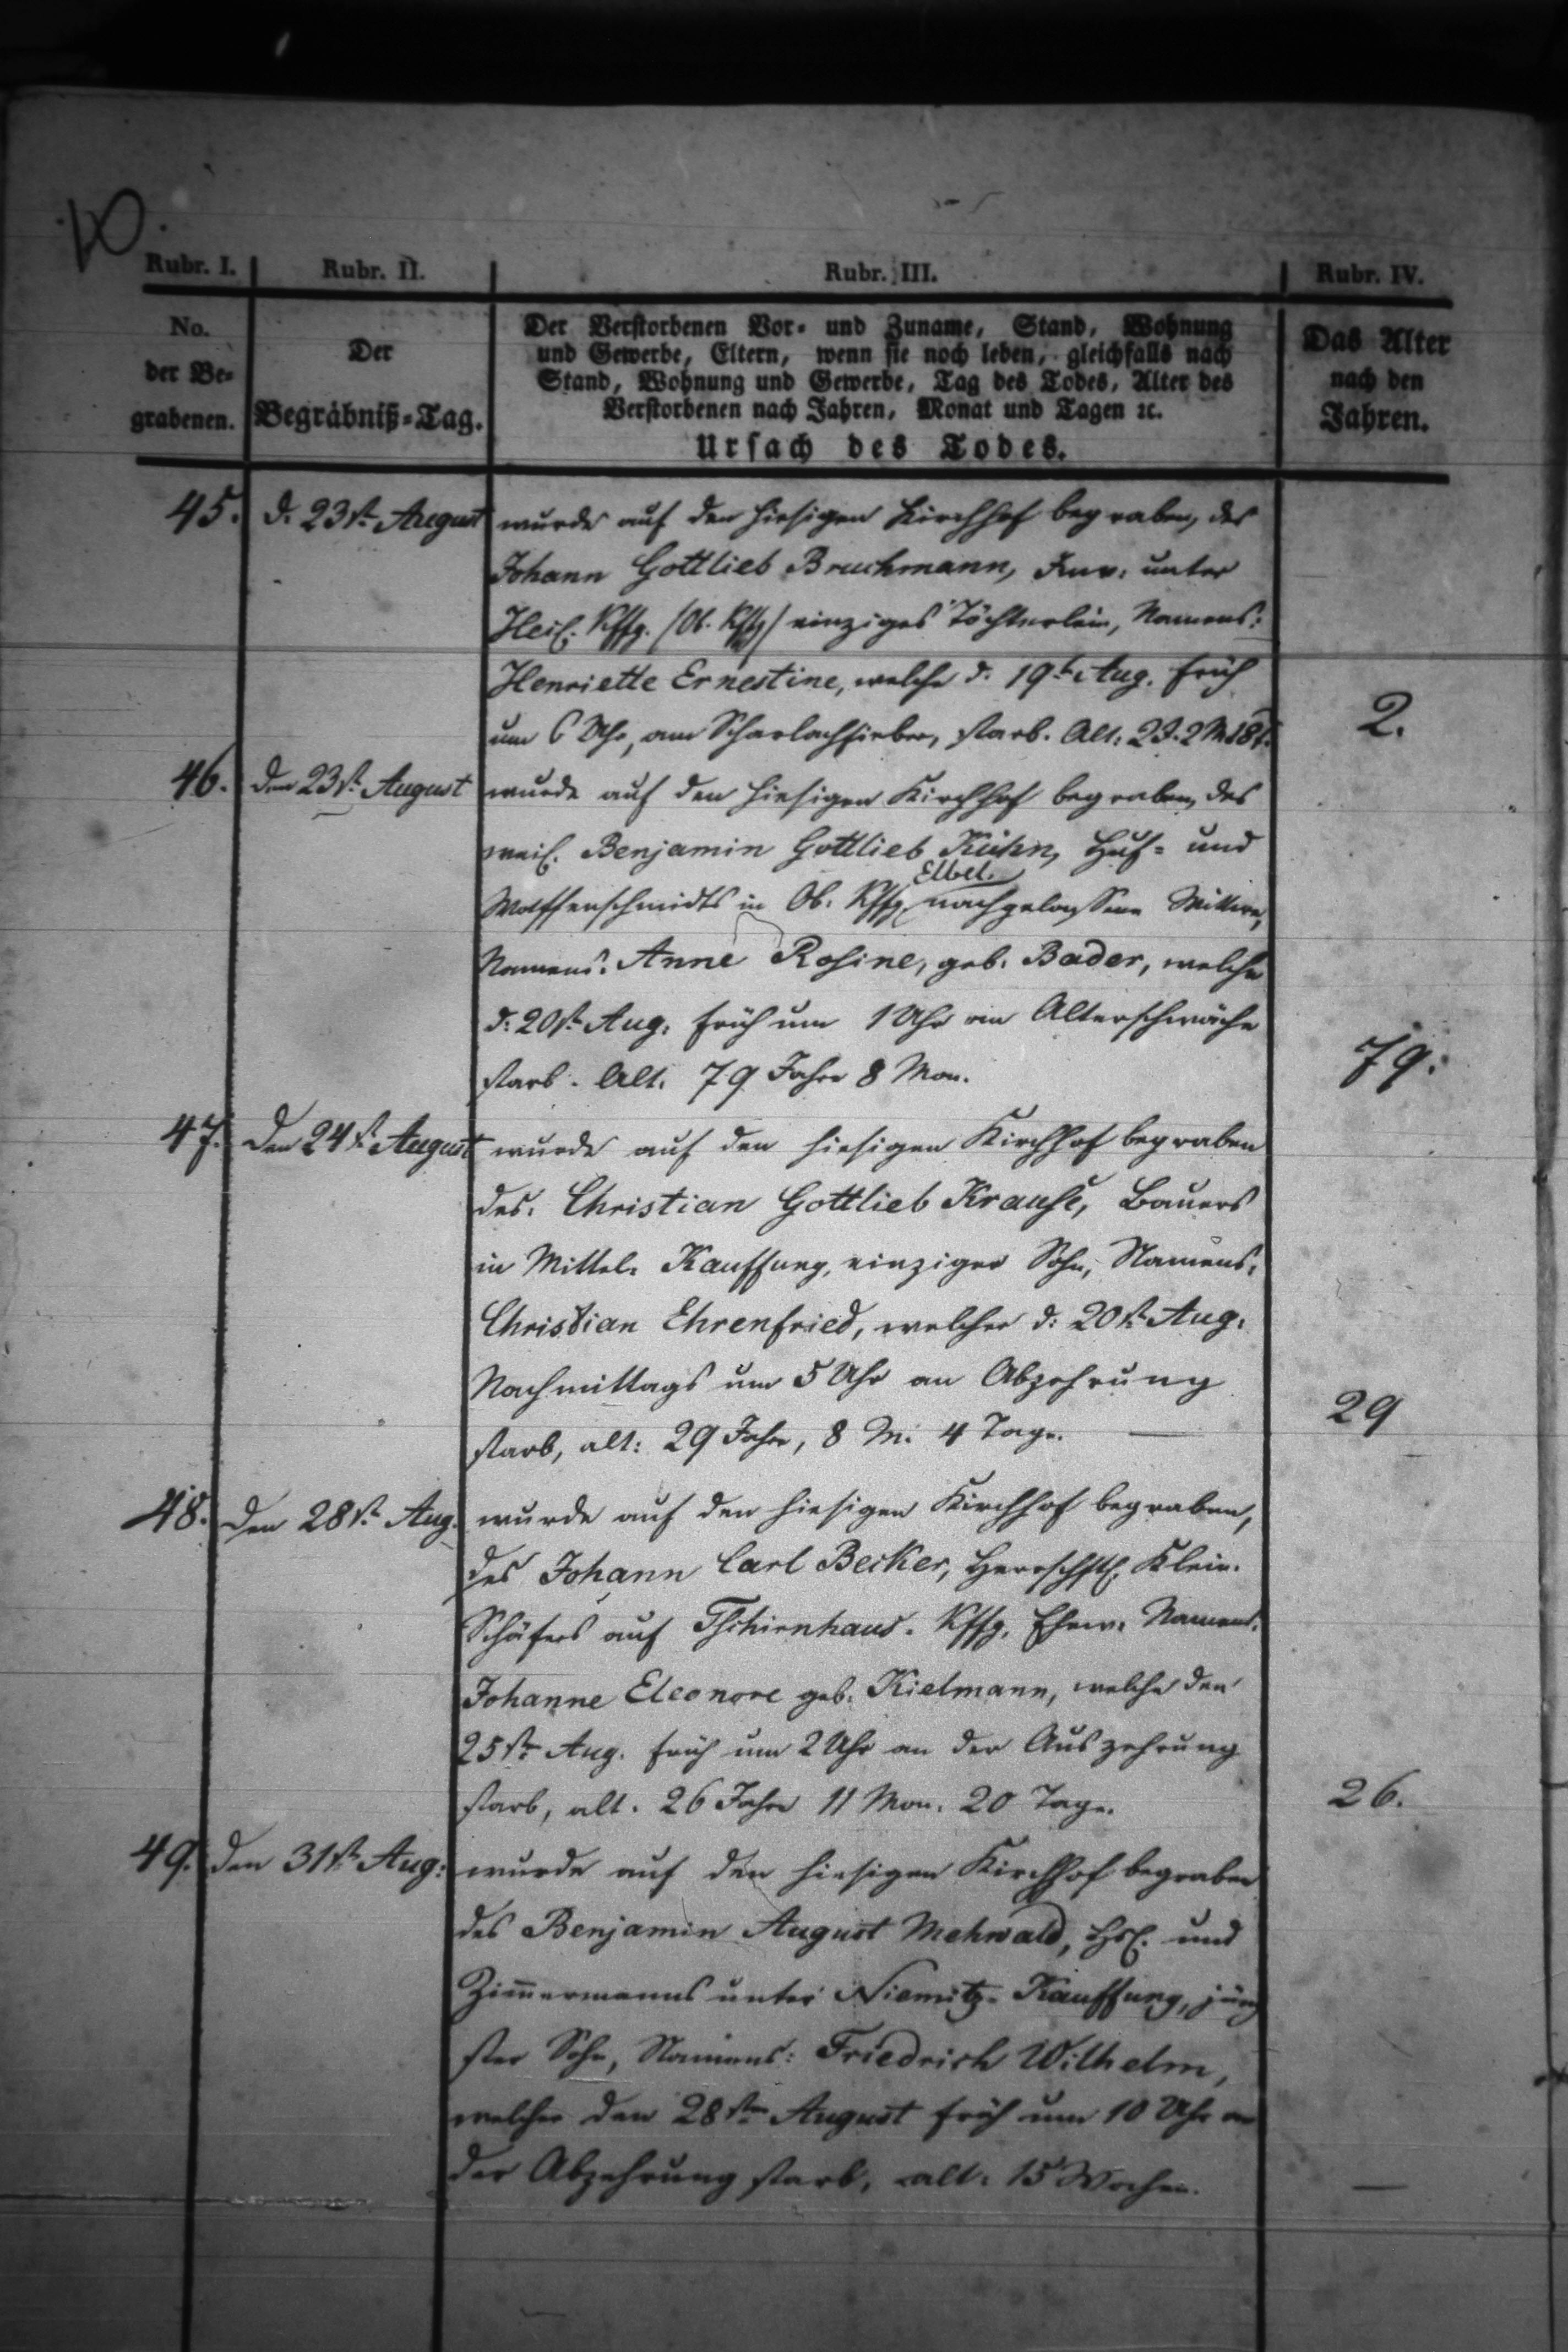 10.
Rubr. I. Rubr. II. Rubr. III. Rubr. IV.
No.
der Be-
grabenen.
Der
Begräbniß-Tag.
Der Verstorbenen Vor- und Zuname, Stand, Wohnung
und Gewerbe, Eltern, wenn sie noch leben, gleichfalls nach
Stand, Wohnung und Gewerbe, Tag des Todes, Alter des
Verstorbenen nach Jahren, Monat und Tagen ꝛc.
Ursach des Todes.
Das Alter
nach den
Jahren.
45. d. 23st. August wurde auf den hiesigen Kirchhof begraben, des
Johann Gottlieb Bruchmann, Inw. unter
Heil. Kffg. (Ob. Kffg) einziges Töchterlein, Namens:
Henriette Ernestine, welche d. 19t. Aug. früh
um 6 Uhr, am Scharlachfieber, starb. Alt: 2 J. 2 M. 18 t. 2.
46. den 23st. August wurde auf den hiesigen Kirchhof begraben, des
weil. Benjamin Gottlieb Kühn, Huf- und
Elbel.
Waffenschmidts in Ob. Kffg. nachgelassene Wittwe,
Namens: Anne Rosine, geb. Bader, welche
d. 20st. Aug. früh um 1 Uhr an Altersschwäche
starb. Alt. 79 Jahre 8 Mon. 79.
47. Den 24st. August wurde auf den hiesigen Kirchhof begraben
des. Christian Gottlieb Krause, Bauers
in Mittel. Kauffung, einziger Sohn, Namens,
Christian Ehrenfried, welcher d. 20st. Aug.
Nachmittags um 5 Uhr an Abzehrung
starb, alt: 29 Jahre, 8 M. 4 Tage. — 29
48. Den 28st. Aug. wurde auf den hiesigen Kirchhof begraben,
des Johann Carl Becker, Herrschftl. Klein.
Schäfers auf Tschirnhaus. Kffg. Ehew. Namens.
Johanne Eleonore geb. Kielmann, welche den
25st. Aug. früh um 2 Uhr an der Auszehrung
starb, alt. 26 Jahre 11 Mon. 20 Tage. 26.
49. den 31st. Aug: wurde auf den hiesigen Kirchhof begraben
des Benjamin August Mehwald, Hsl. und
Zimmermanns unter Niemitz-Kauffung, jüng
ster Sohn, Namens: Friedrich Wilhelm,
welcher den 28sten August früh um 10 Uhr an
der Abzehrung starb, alt: 15 Wochen. —